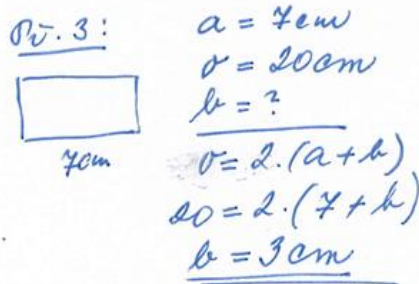 Př. 3:
7cm
a = 7cm
o = 20cm
b = ?
o = 2.(a+b)
20 = 2.(7+b)
b = 3cm